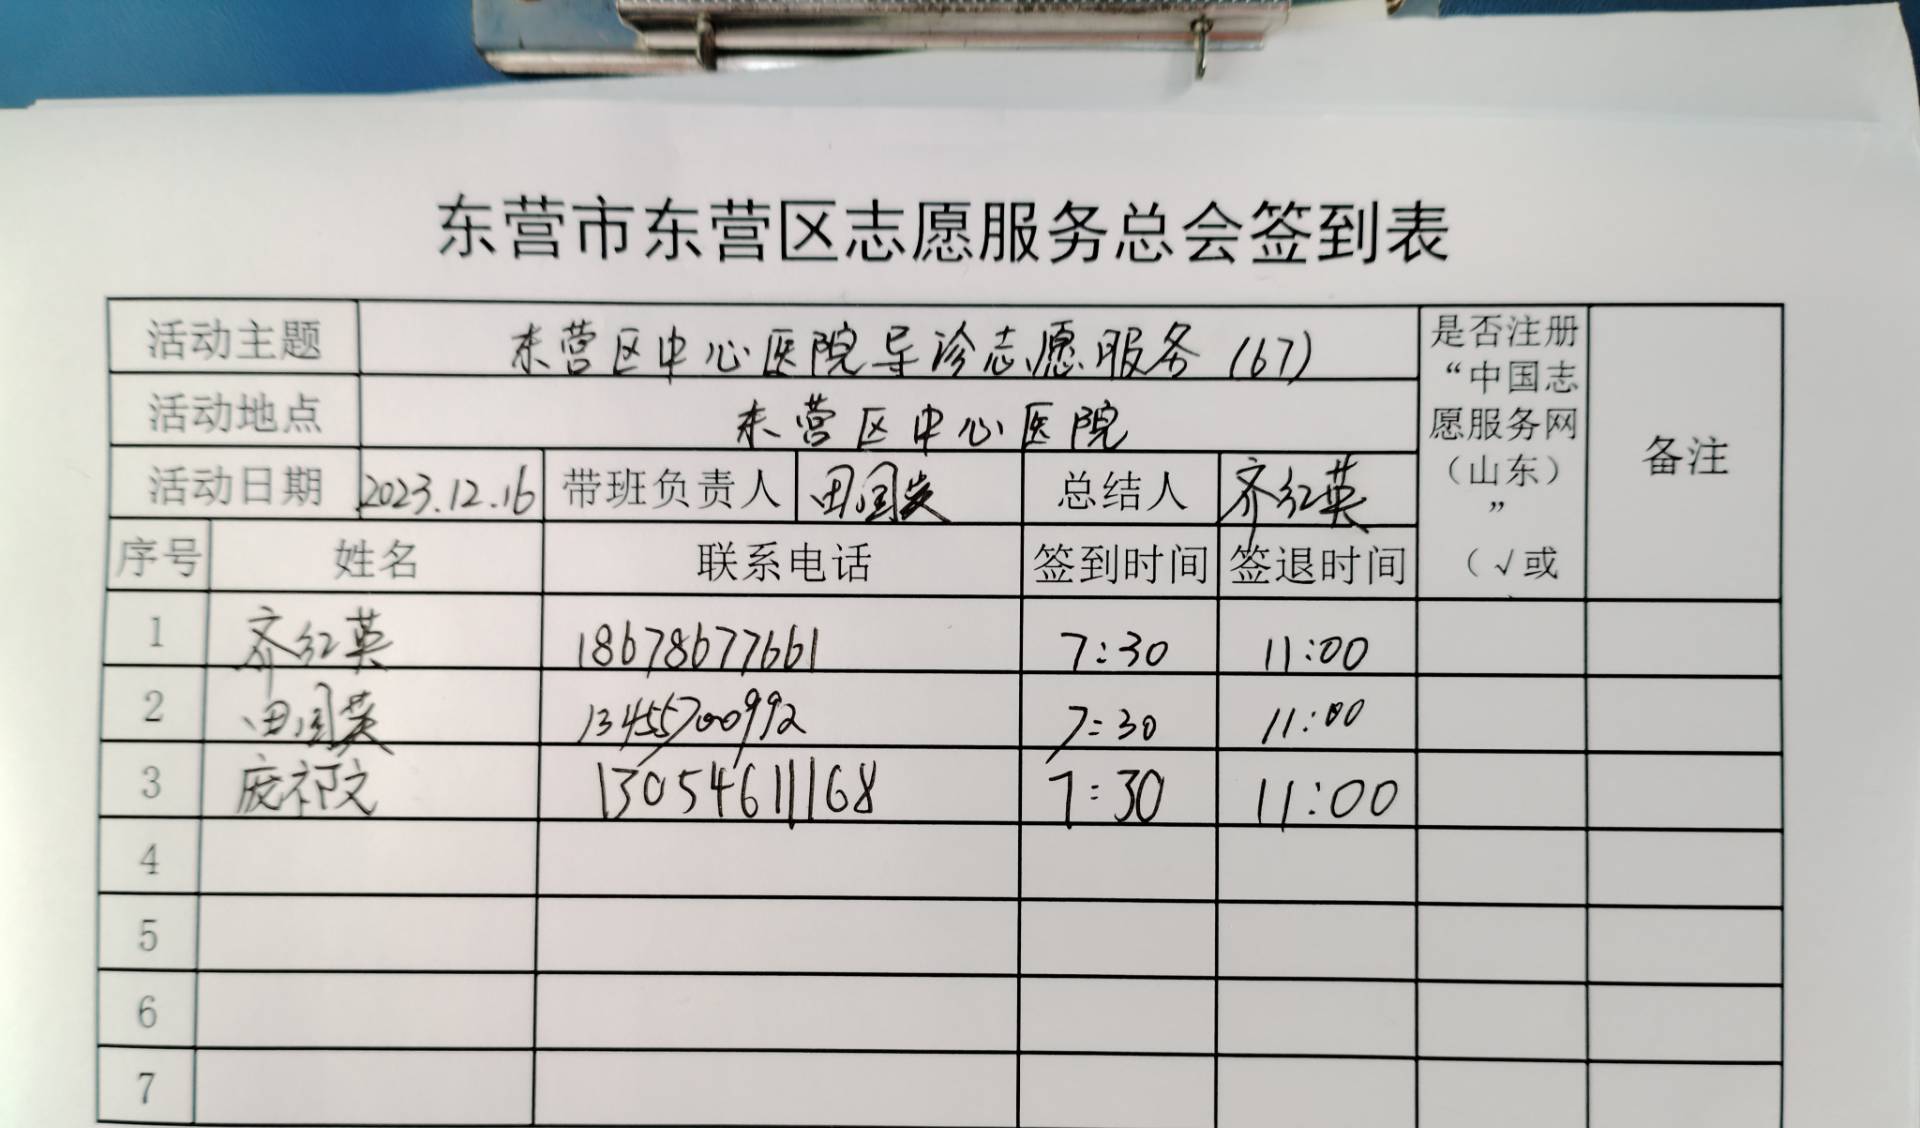 东营市东营区志愿服务总会签到表
活动主题 东营区中心医院导诊志愿服务(67)
活动地点 东营区中心医院
活动日期 2023.12.16 带班负责人 田国英 总结人 齐红英
是否注册
“中国志
愿服务网
（山东）
”
（√或
备注
序号 姓名 联系电话 签到时间 签退时间
1 齐红英 18678677661 7:30 11:00
2 田国英 13455700992 7:30 11:00
3 庞祁文 13054611168 7:30 11:00
4
5
6
7